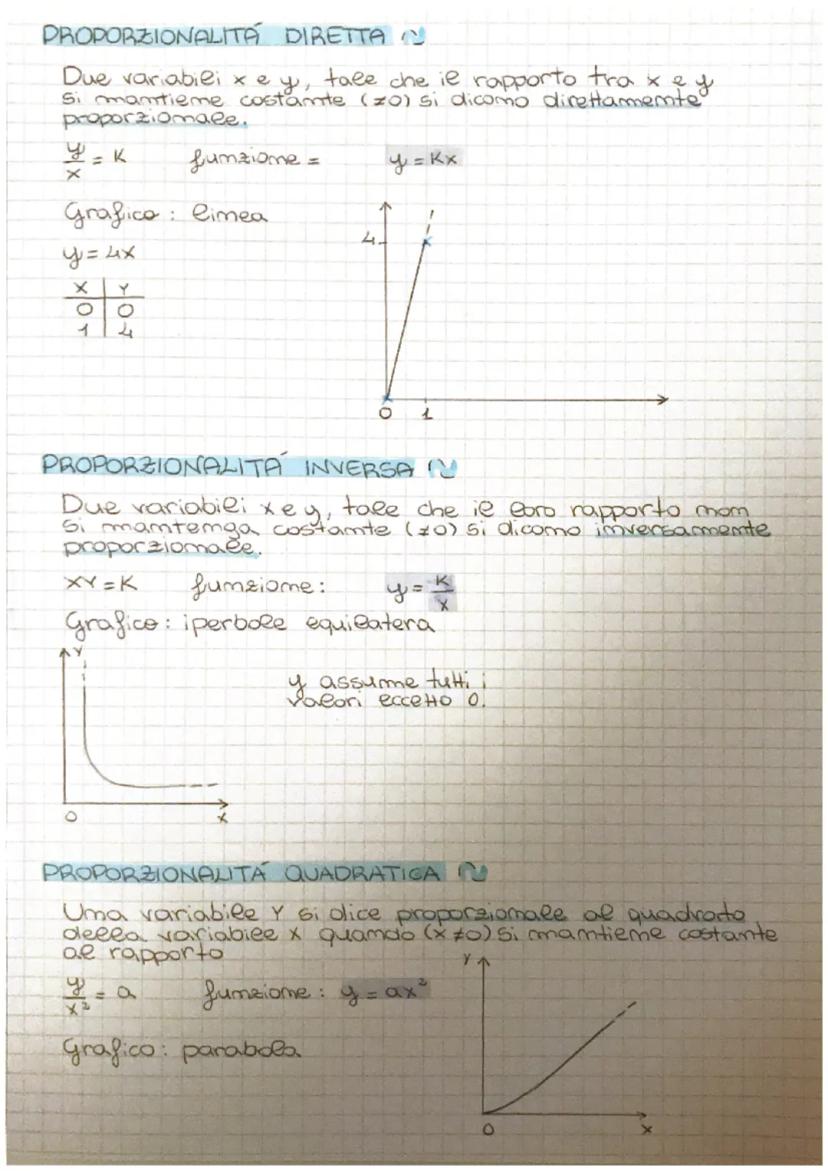 PROPORZIONALITÁ DIRETTA
Due variabili x e y, tale che il rapporto tra x e y
si mantiene costante (≠0) si dicono direttamente
proporzionale.
y/x = K funzione = y = Kx
Grafico : linea
4
y = 4x
X Y
0 0
1 4
0 1
PROPORZIONALITÁ INVERSA
Due variabili x e y, tale che il loro rapporto non
si mantenga costante (≠0) si dicono inversamente
proporzionale.
XY = K funzione : y = K/X
Grafico : iperbole equilatera
Y
y assume tutti i
valori eccetto 0.
0 X
PROPORZIONALITÁ QUADRATICA
Una variabile Y si dice proporzionale al quadrato
della variabile X quando (x ≠0) si mantiene costante
al rapporto
Y
y/x² = a funzione : y = ax²
Grafico : parabola
0 X